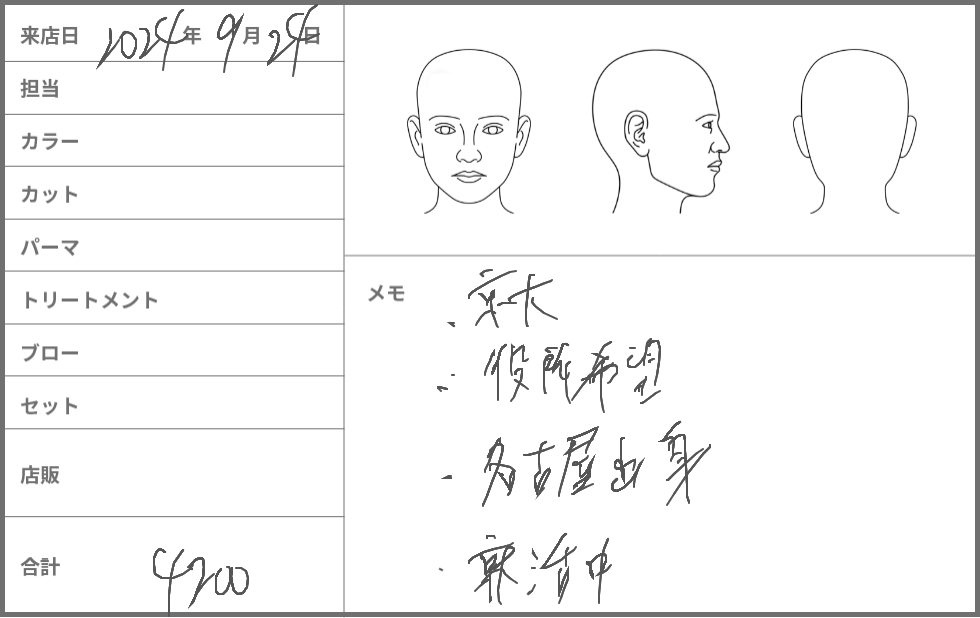 来店日 2024年 9月 24日
担当
カラー
カット
パーマ
トリートメント
ブロー
セット
店販
合計 4200
メモ
・京大
・役所希望
・名古屋出身
・就活中